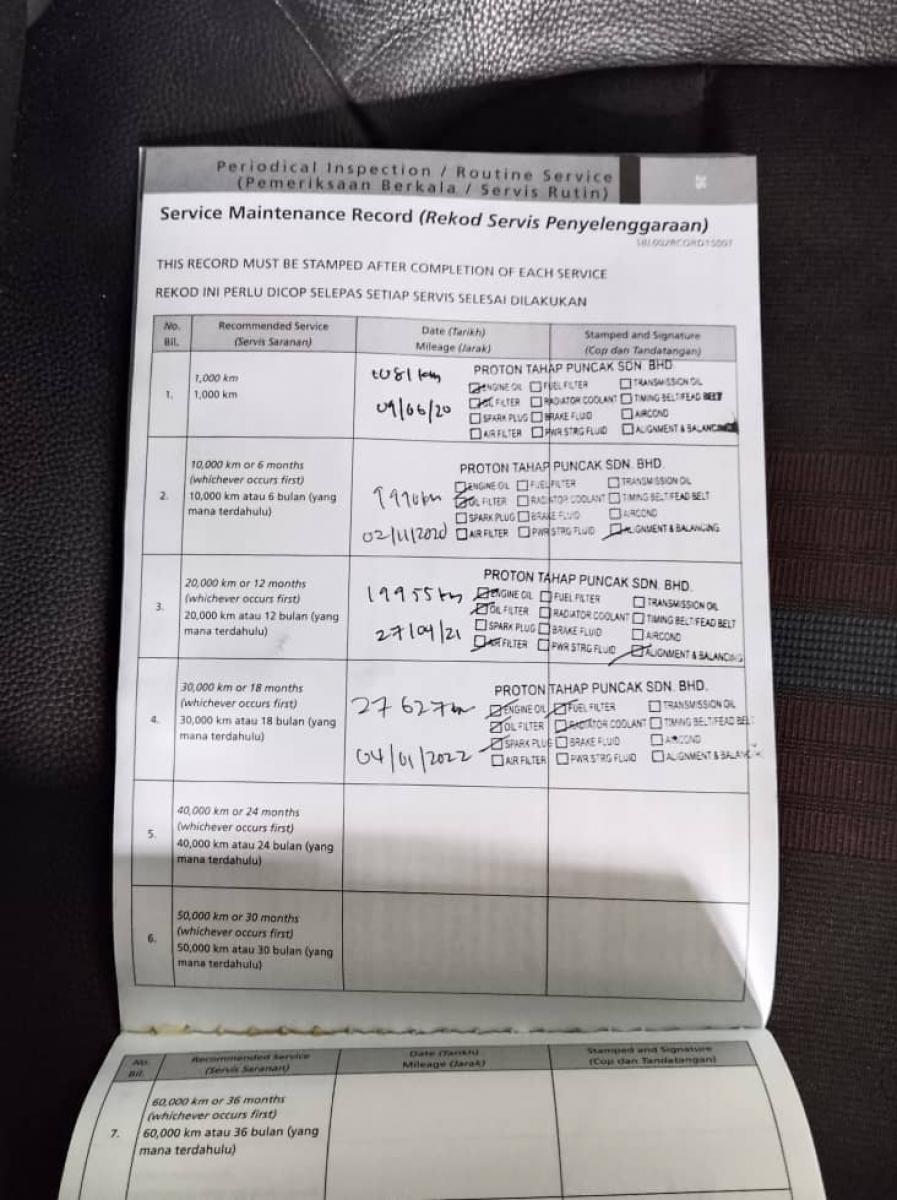 Periodical Inspection / Routine Service
(Pemeriksaan Berkala / Servis Rutin)
Service Maintenance Record (Rekod Servis Penyelenggaraan)
THIS RECORD MUST BE STAMPED AFTER COMPLETION OF EACH SERVICE
REKOD INI PERLU DICOP SELEPAS SETIAP SERVIS SELESAI DILAKUKAN
No. Bil.
Recommended Service
(Servis Saranan)
Date (Tarikh)
Mileage (Jarak)
Stamped and Signature
(Cop dan Tandatangan)
1.
1,000 km
1,000 km
1081 km
09/06/20
PROTON TAHAP PUNCAK SDN. BHD.
ENGINE OIL FUEL FILTER TRANSMISSION OIL
OIL FILTER RADIATOR COOLANT TIMING BELT/FEAD BELT
SPARK PLUG BRAKE FLUID AIRCOND
AIR FILTER PWR STRG FLUID ALIGNMENT & BALANCING
2.
10,000 km or 6 months
(whichever occurs first)
10,000 km atau 6 bulan (yang
mana terdahulu)
9970km
02/11/2020
PROTON TAHAP PUNCAK SDN. BHD.
ENGINE OIL FUEL FILTER TRANSMISSION OIL
OIL FILTER RADIATOR COOLANT TIMING BELT/FEAD BELT
SPARK PLUG BRAKE FLUID AIRCOND
AIR FILTER PWR STRG FLUID ALIGNMENT & BALANCING
3.
20,000 km or 12 months
(whichever occurs first)
20,000 km atau 12 bulan (yang
mana terdahulu)
19955km
27/04/21
PROTON TAHAP PUNCAK SDN. BHD.
ENGINE OIL FUEL FILTER TRANSMISSION OIL
OIL FILTER RADIATOR COOLANT TIMING BELT/FEAD BELT
SPARK PLUG BRAKE FLUID AIRCOND
AIR FILTER PWR STRG FLUID ALIGNMENT & BALANCING
4.
30,000 km or 18 months
(whichever occurs first)
30,000 km atau 18 bulan (yang
mana terdahulu)
27627km
04/01/2022
PROTON TAHAP PUNCAK SDN. BHD.
ENGINE OIL FUEL FILTER TRANSMISSION OIL
OIL FILTER RADIATOR COOLANT TIMING BELT/FEAD BELT
SPARK PLUG BRAKE FLUID AIRCOND
AIR FILTER PWR STRG FLUID ALIGNMENT & BALANCING
5.
40,000 km or 24 months
(whichever occurs first)
40,000 km atau 24 bulan (yang
mana terdahulu)
6.
50,000 km or 30 months
(whichever occurs first)
50,000 km atau 30 bulan (yang
mana terdahulu)
No. Bil.
Recommended Service
(Servis Saranan)
Date (Tarikh)
Mileage (Jarak)
Stamped and Signature
(Cop dan Tandatangan)
7.
60,000 km or 36 months
(whichever occurs first)
60,000 km atau 36 bulan (yang
mana terdahulu)